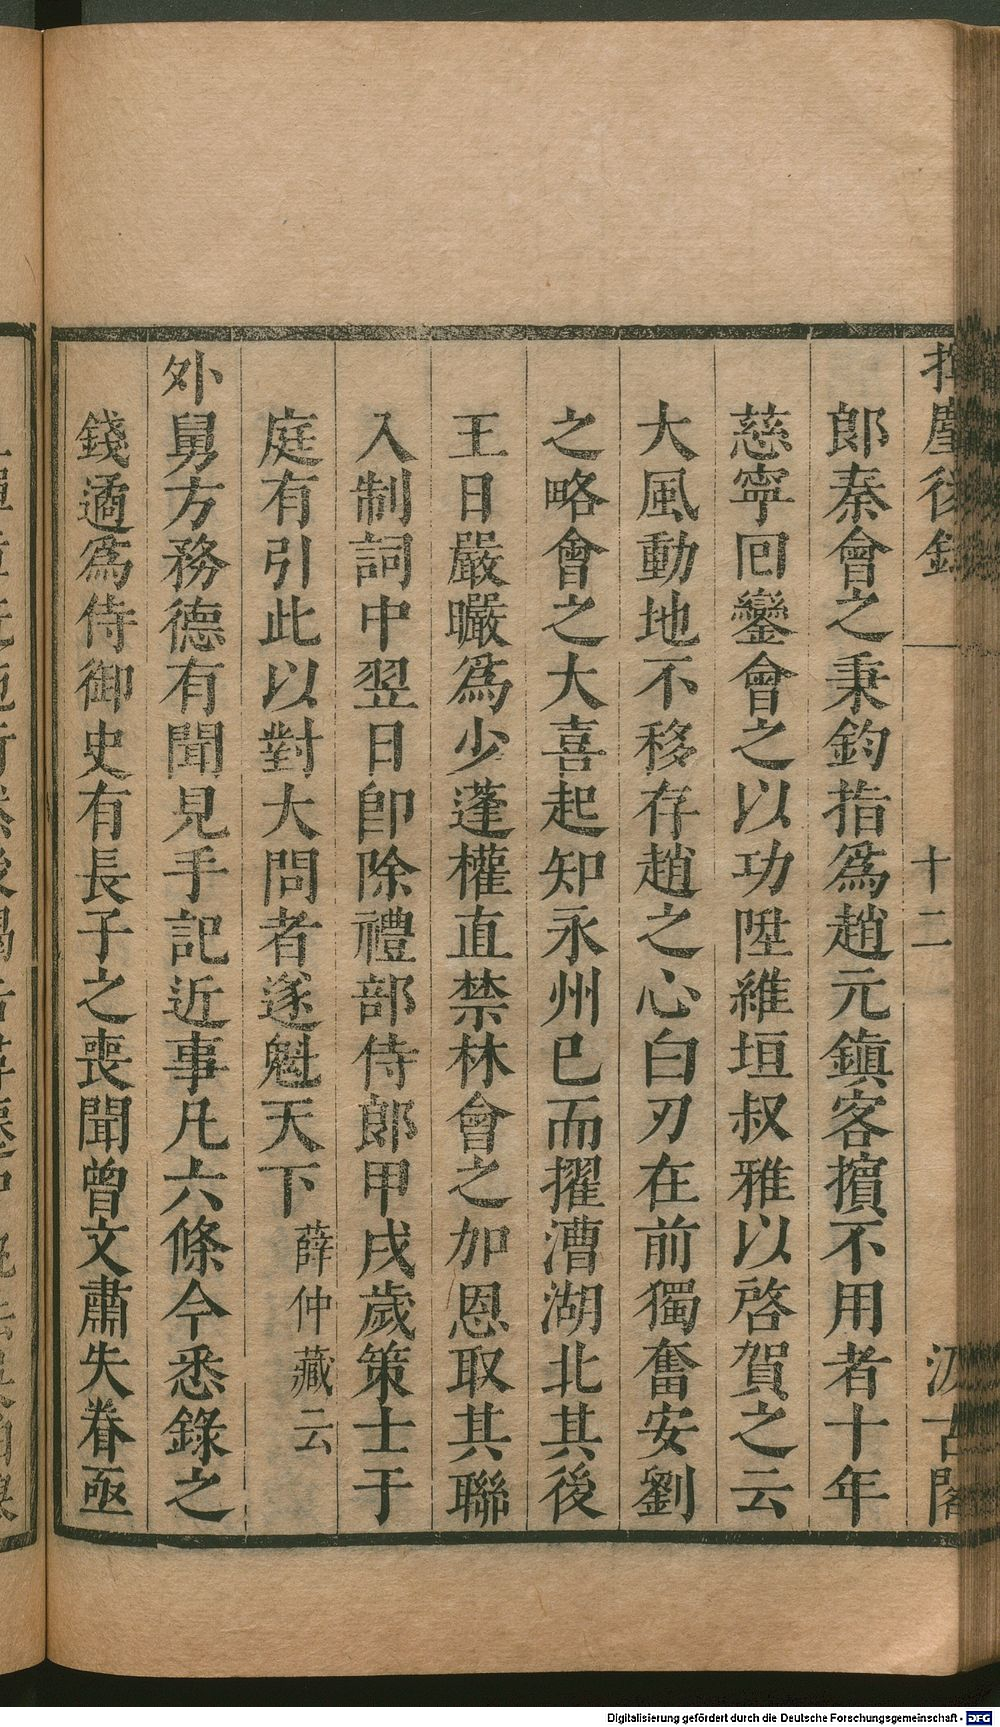 揮麈後錄
十二
汲古閣
郎秦會之秉鈞指爲趙元鎮客擯不用者十年
慈寧囘鑾會之以功陞維垣叔雅以啓賀之云
大風動地不移存趙之心白刃在前獨奮安劉
之略會之大喜起知永州已而擢漕湖北其後
王日嚴曮爲少蓬權直禁林會之加恩取其聯
入制詞中翌日卽除禮部侍郎甲戌歲策士于
庭有引此以對大問者遂魁天下薛仲藏云
外舅方務德有聞見手記近事凡六條今悉錄之
錢遹爲侍御史有長子之喪聞曾文肅失眷亟
Digitalisierung gefördert durch die Deutsche Forschungsgemeinschaft - DFG